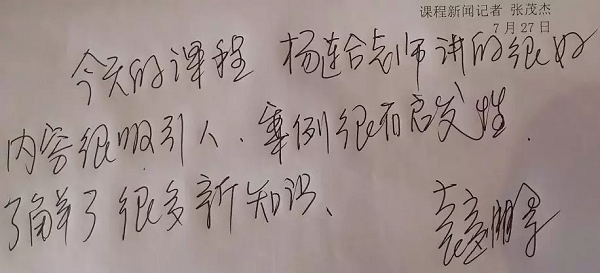 课程新闻记者 张茂杰
7月27日
今天的课程 杨连合老师讲的很好
内容很吸引人、案例很有启发性.
了解了很多新知识、